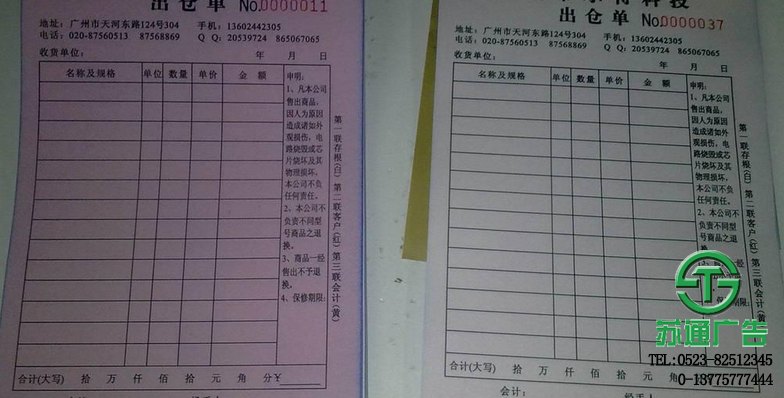 出仓单 No.0000011
地址：广州市天河东路124号304 手机：13602442305
电话：020-87560513 87568869 Q Q：20539724 865067065
收货单位： 年 月 日
名称及规格 单位 数量 单价 金额
申明：
1、凡本公司
售出商品，
因人为原因
造成诸如外
观损伤，电
路烧毁或芯
片烧坏及其
物理损坏，
本公司不负
任何责任。
2、本公司不
负责不同型
号商品之退
换。
3、商品一经
售出不予退
换。
4、保修期限：
第一联存根(白) 第二联客户(红) 第三联会计(黄)
合计(大写) 拾 万 仟 佰 拾 元 角 分￥
会计： 经手人
出仓单 No.0000037
地址：广州市天河东路124号304 手机：13602442305
电话：020-87560513 87568869 Q Q：20539724 865067065
收货单位： 年 月 日
名称及规格 单位 数量 单价 金额
申明：
1、凡本公司
售出商品，
因人为原因
造成诸如外
观损伤，电
路烧毁或芯
片烧坏及其
物理损坏，
本公司不负
任何责任。
2、本公司不
负责不同型
号商品之退
换。
3、商品一经
售出不予退
换。
4、保修期限：
第一联存根(白) 第二联客户(红) 第三联会计(黄)
合计(大写) 拾 万 仟 佰 拾 元 角
会计： 经手人
苏通广告
TEL:0523-82512345
0-13775777444